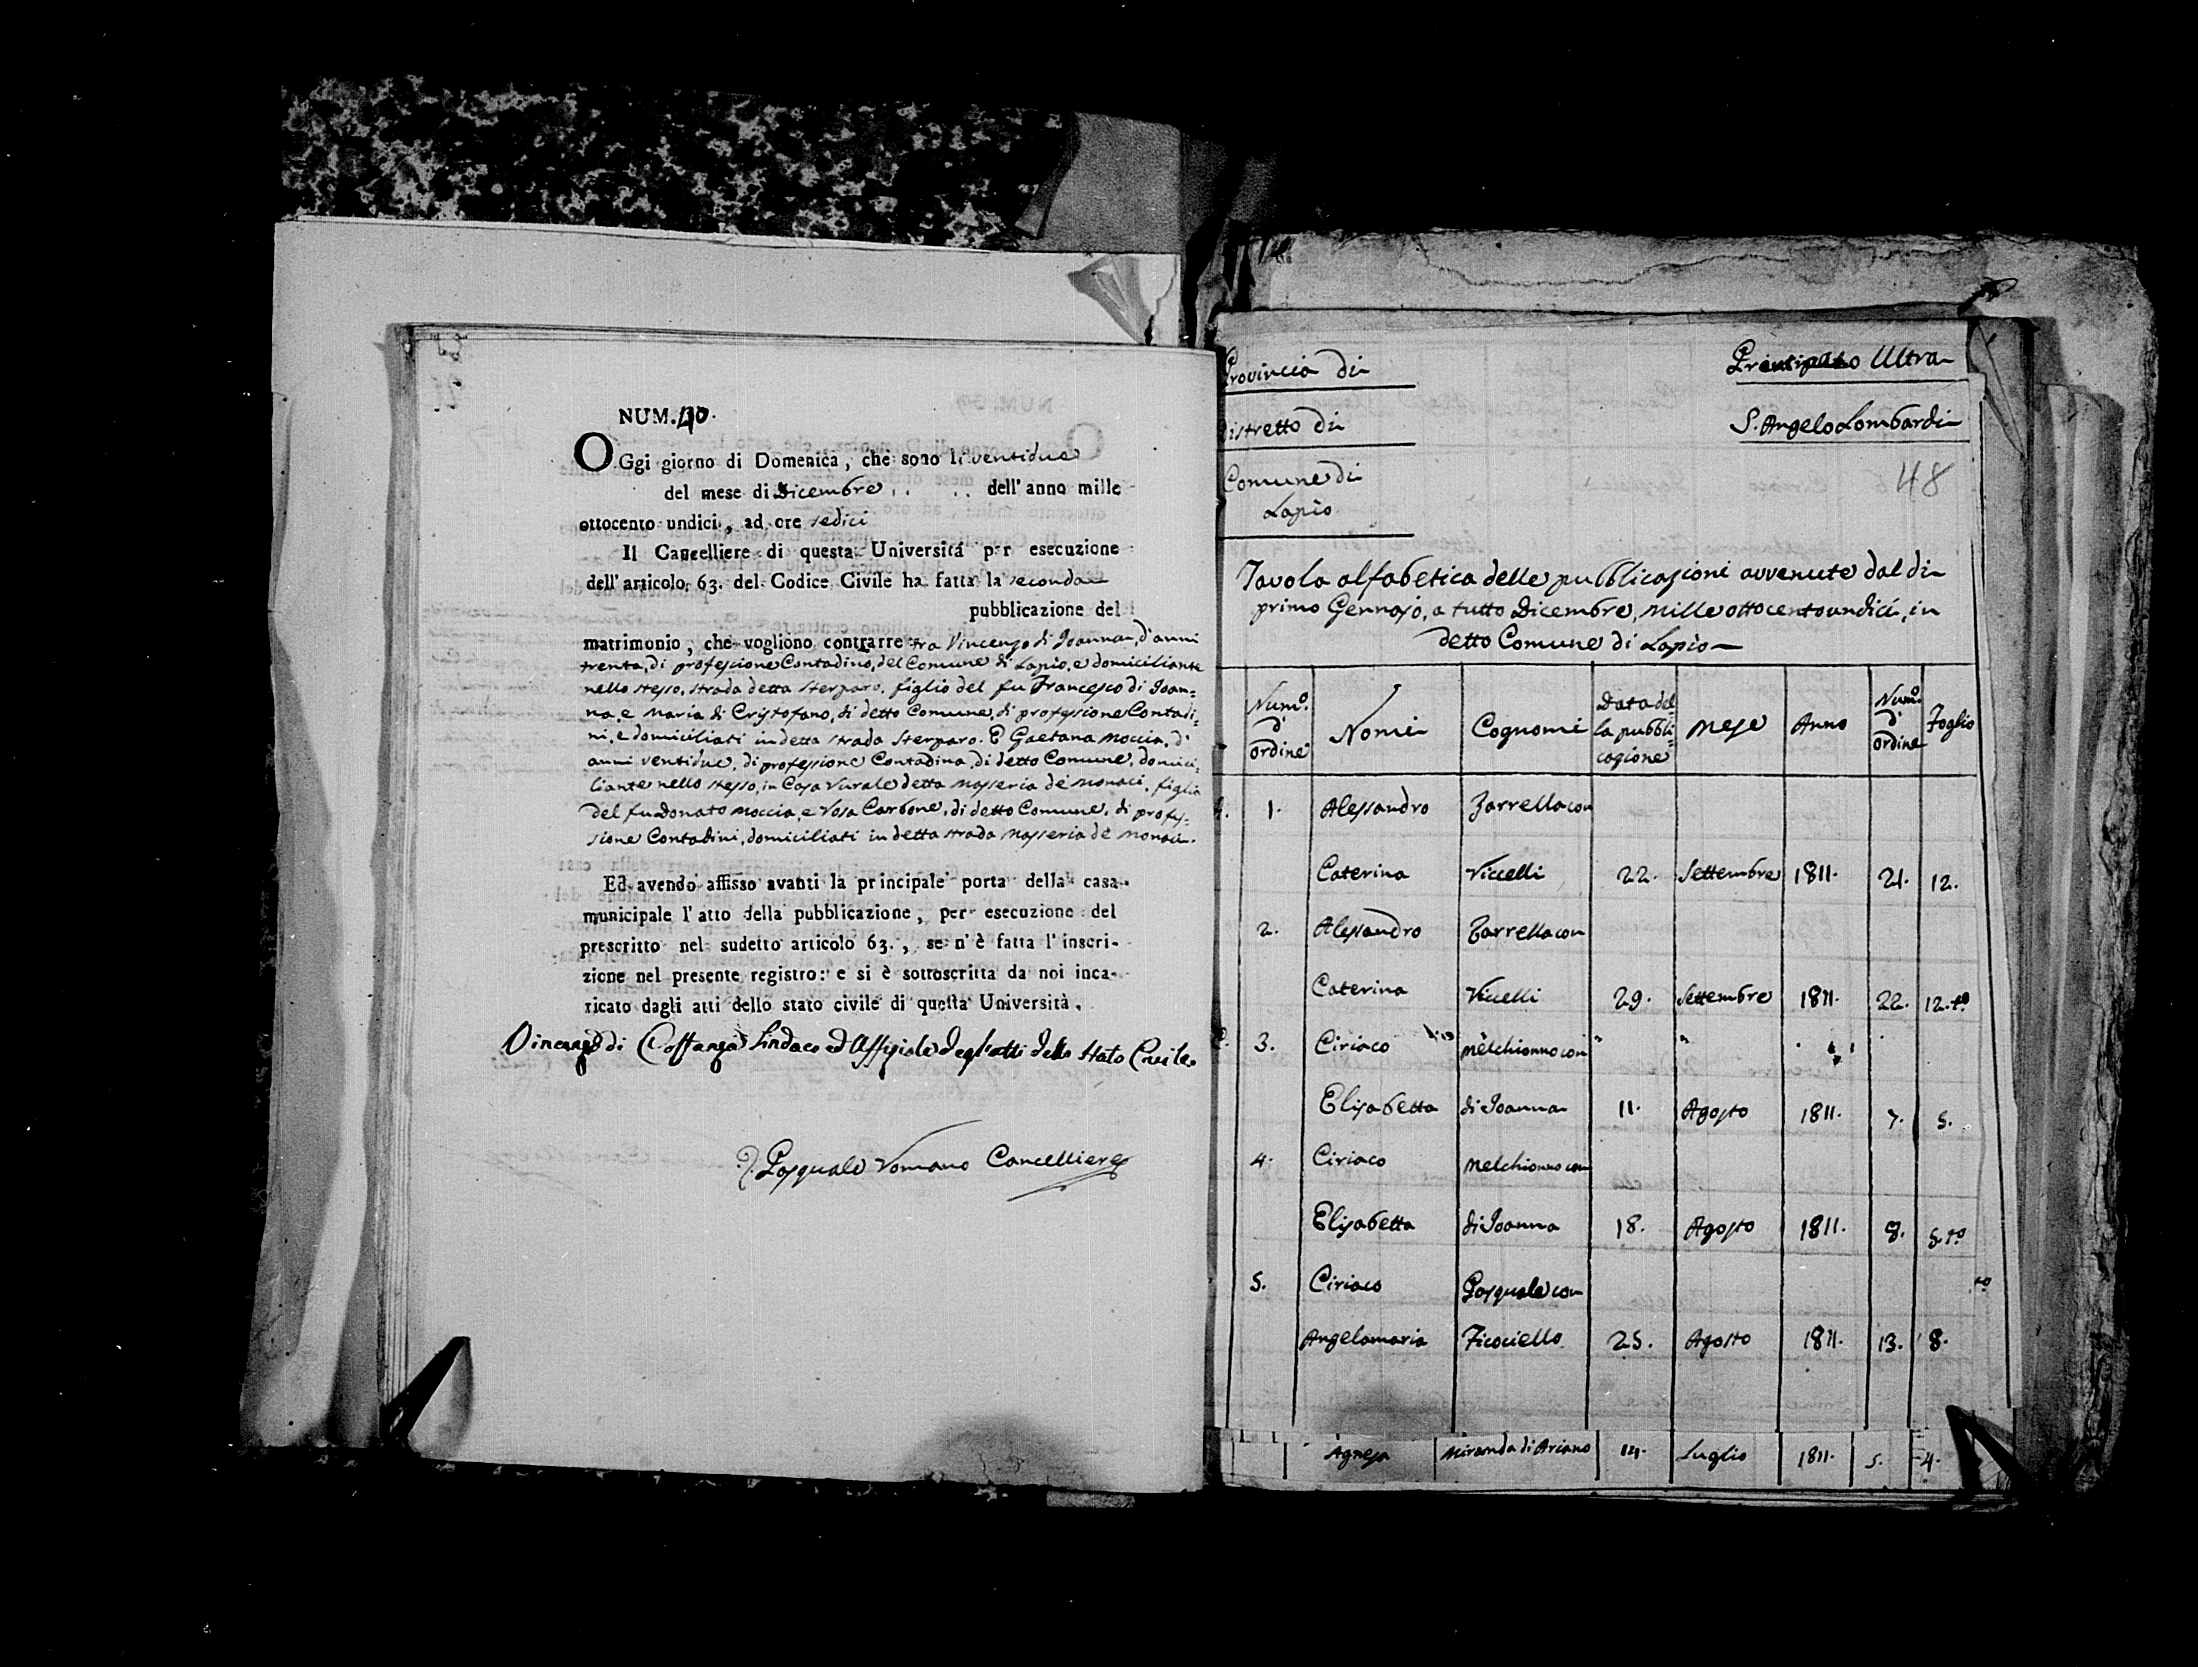 NUM. 40.
OGgi giorno di Domenica, che sono li ventidue
del mese di Dicembre . . . . dell' anno mille
ottocento undici, ad ore sedici
Il Cancelliere di questa Universitá per esecuzione
dell' articolo 63. del Codice Civile ha fatta la seconda
pubblicazione del
matrimonio, che vogliono contrarre tra Vincenzo di Joanna, d'anni
trenta, di professione Contadino, del Comune di Lapio, e domiciliante
nello stesso, strada detta Sterparo, figlio del fu Francesco di Joan=
na, e Maria di Cristofano, di detto Comune, di professione Contadi=
ni, e domiciliati in detta strada Sterparo. E Gaetana Moccia, d'
anni ventidue, di professione Contadina, di detto Comune, domici=
liante nello stesso, in Casa Rurale detta Masseria de' Monaci, figlia
del fu Donato Moccia, e Rosa Carbone, di detto Comune, di profes=
sione Contadini, domiciliati in detta strada Masseria de' Monaci.
Ed avendo affisso avanti la principale porta della casa
municipale l' atto della pubblicazione, per esecuzione del
prescritto nel sudetto articolo 63., se n' è fatta l' inscri-
zione nel presente registro: e si è sottoscritta da noi inca-
ricato dagli atti dello stato civile di questa Università.
Vincenzo di Costanza Sindaco ed Uffiziale degl'atti dello Stato Civile
Pasquale Romano Cancelliere
Provincia di Principato Ultra
Distretto di S. Angelo Lombardi
48
Comune di
Lapio
Tavola alfabetica delle pubblicazioni avvenute dal di
primo Gennajo, a tutto Dicembre, mille ottocento undici, in
detto Comune di Lapio
Num.o d' ordine Nomi Cognomi Data del la pubbli= cazione Mese Anno Num.o d' ordine Foglio
A. 1. Alessandro Zarrella con
Caterina Riccelli 22. Settembre 1811. 21. 12.
2. Alessandro Zarrella con
Caterina Riccelli 29. Settembre 1811. 22. 12. to
C. 3. Ciriaco Melchionno con
Elisabetta di Joanna 11. Agosto 1811. 7. 5.
4. Ciriaco Melchionno con
Elisabetta di Joanna 18. Agosto 1811. 8. 5. to
5. Ciriaco Pasquale con
Angelamaria Ficociello 25. Agosto 1811. 13. 8.
Agnesa Miranda di Ariano 14. Luglio 1811. 5. 4.